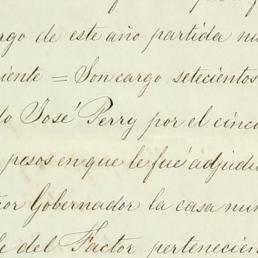 rgo de este año partida nu
iente = Son cargo setecientos
do José Perry por el cinc
pesos en que le fué adjudi
or Gobernador la casa nu
e del Factor pertenecien